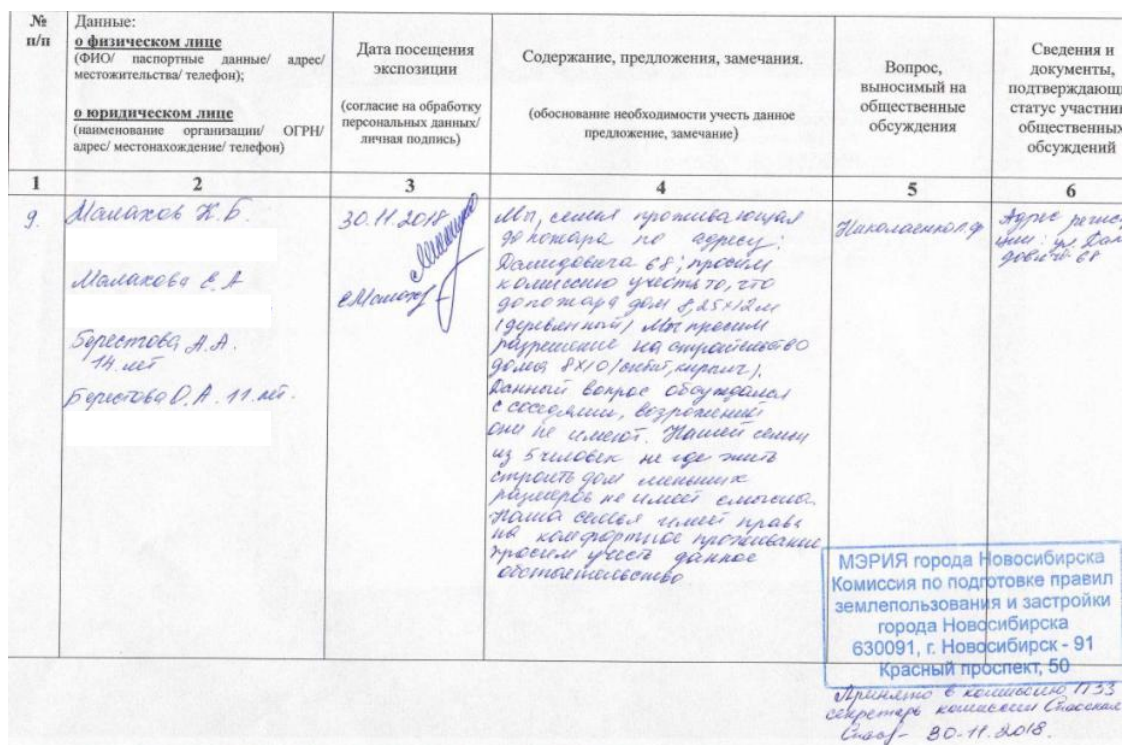 № п/п
Данные:
о физическом лице
(ФИО/ паспортные данные/ адрес/ местожительства/ телефон);
о юридическом лице
(наименование организации/ ОГРН/ адрес/ местонахождение/ телефон)
Дата посещения
экспозиции
(согласие на обработку
персональных данных/
личная подпись)
Содержание, предложения, замечания.
(обоснование необходимости учесть данное
предложение, замечание)
Вопрос,
выносимый на
общественные
обсуждения
Сведения и
документы,
подтверждающи
статус участник
общественных
обсуждений
1 2 3 4 5 6
9.
Малахов К.Б.
Малахова Е.А
Берестова А.А.
14 лет
Берестова О.А. 11 лет.
30.11.2018
Мы, семья проживающая
до пожара по адресу:
Домидовича 68; просим
комиссию учесть то, что
до пожара дом 8,25×12м
(деревянный) Мы просим
разрешение на строительство
дома 8×10
Данный вопрос обсуждался
с соседями, возражений
они не имеют. Нашей семьи
из 5 человек не где жить
строить дом меньших
размеров не имеет смысла.
Наша семья имеет право
на комфортное проживание
просим учесть данное
обстоятельство
Адрес регист
ул.
68
МЭРИЯ города Новосибирска
Комиссия по подготовке правил
землепользования и застройки
города Новосибирска
630091, г. Новосибирск - 91
Красный проспект, 50
Принято в комиссию ПЗЗ
секретарь комиссии Спасская
30.11.2018.